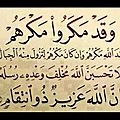 وَقَدْ مَكَرُوا۟ مَكْرَهُمْ
وَعِندَ ٱللَّهِ مَكْرُهُمْ وَإِن كَانَ مَكْرُهُمْ لِتَزُولَ مِنْهُ ٱلْجِبَالُ
فَلَا تَحْسَبَنَّ ٱللَّهَ مُخْلِفَ وَعْدِهِۦ رُسُلَهُۥٓ
إِنَّ ٱللَّهَ عَزِيزٌ ذُو ٱنتِقَامٍ